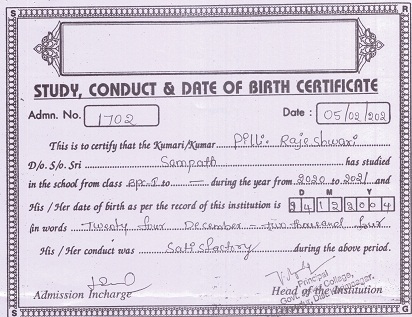 STUDY, CONDUCT & DATE OF BIRTH CERTIFICATE
Admn. No. 1702 Date : 05/02/202
This is to certify that the Kumari/Kumar Pilli. Rajeshwari
D/o. S/o. Sri Sampath has studied
in the school from class to — during the year from 2020 to 2021 and
D M Y
His / Her date of birth as per the record of this institution is 24122004
(in words Twenty four December thousand four
His / Her conduct was Satisfactory during the above period.
Principal
College,
Admission Incharge Head of the Institution